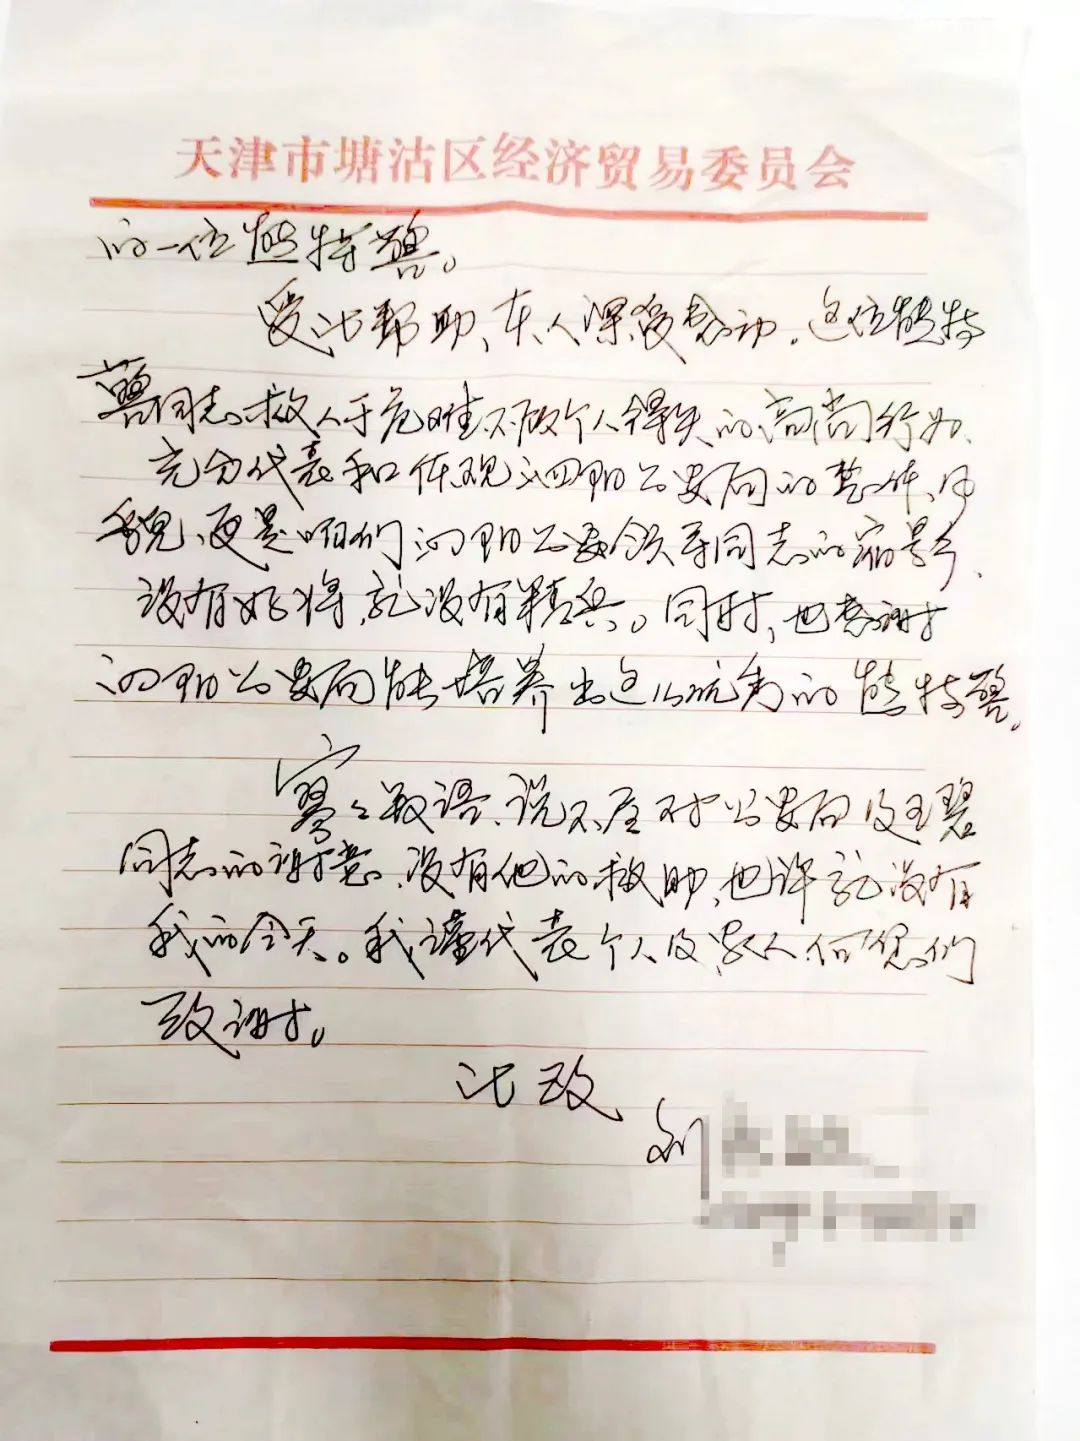 天津市塘沽区经济贸易委员会
的一位特警。
受此帮助、本人深受感动。这位特
警同志救人于危难不顾个人得失的高尚行为、
充分代表和体现了泗阳公安局的整体风
貌、更是咱们泗阳公安领导同志的缩影、
没有好将，就没有精兵。同时，也感谢
泗阳公安局能培养出这么优秀的特警。
寥寥数语、说不尽对公安局及王碧
同志的谢意、没有他的救助，也许就没有
我的今天。我谨代表个人及家人向您们
致谢。
此致
刘